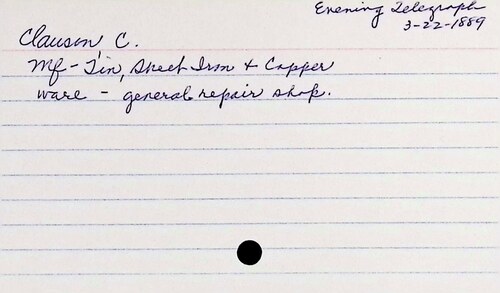 Evening Telegraph
3-22-1889
Clauson, C.
Mf - Tin, Sheet Iron & Copper
ware - general repair shop.